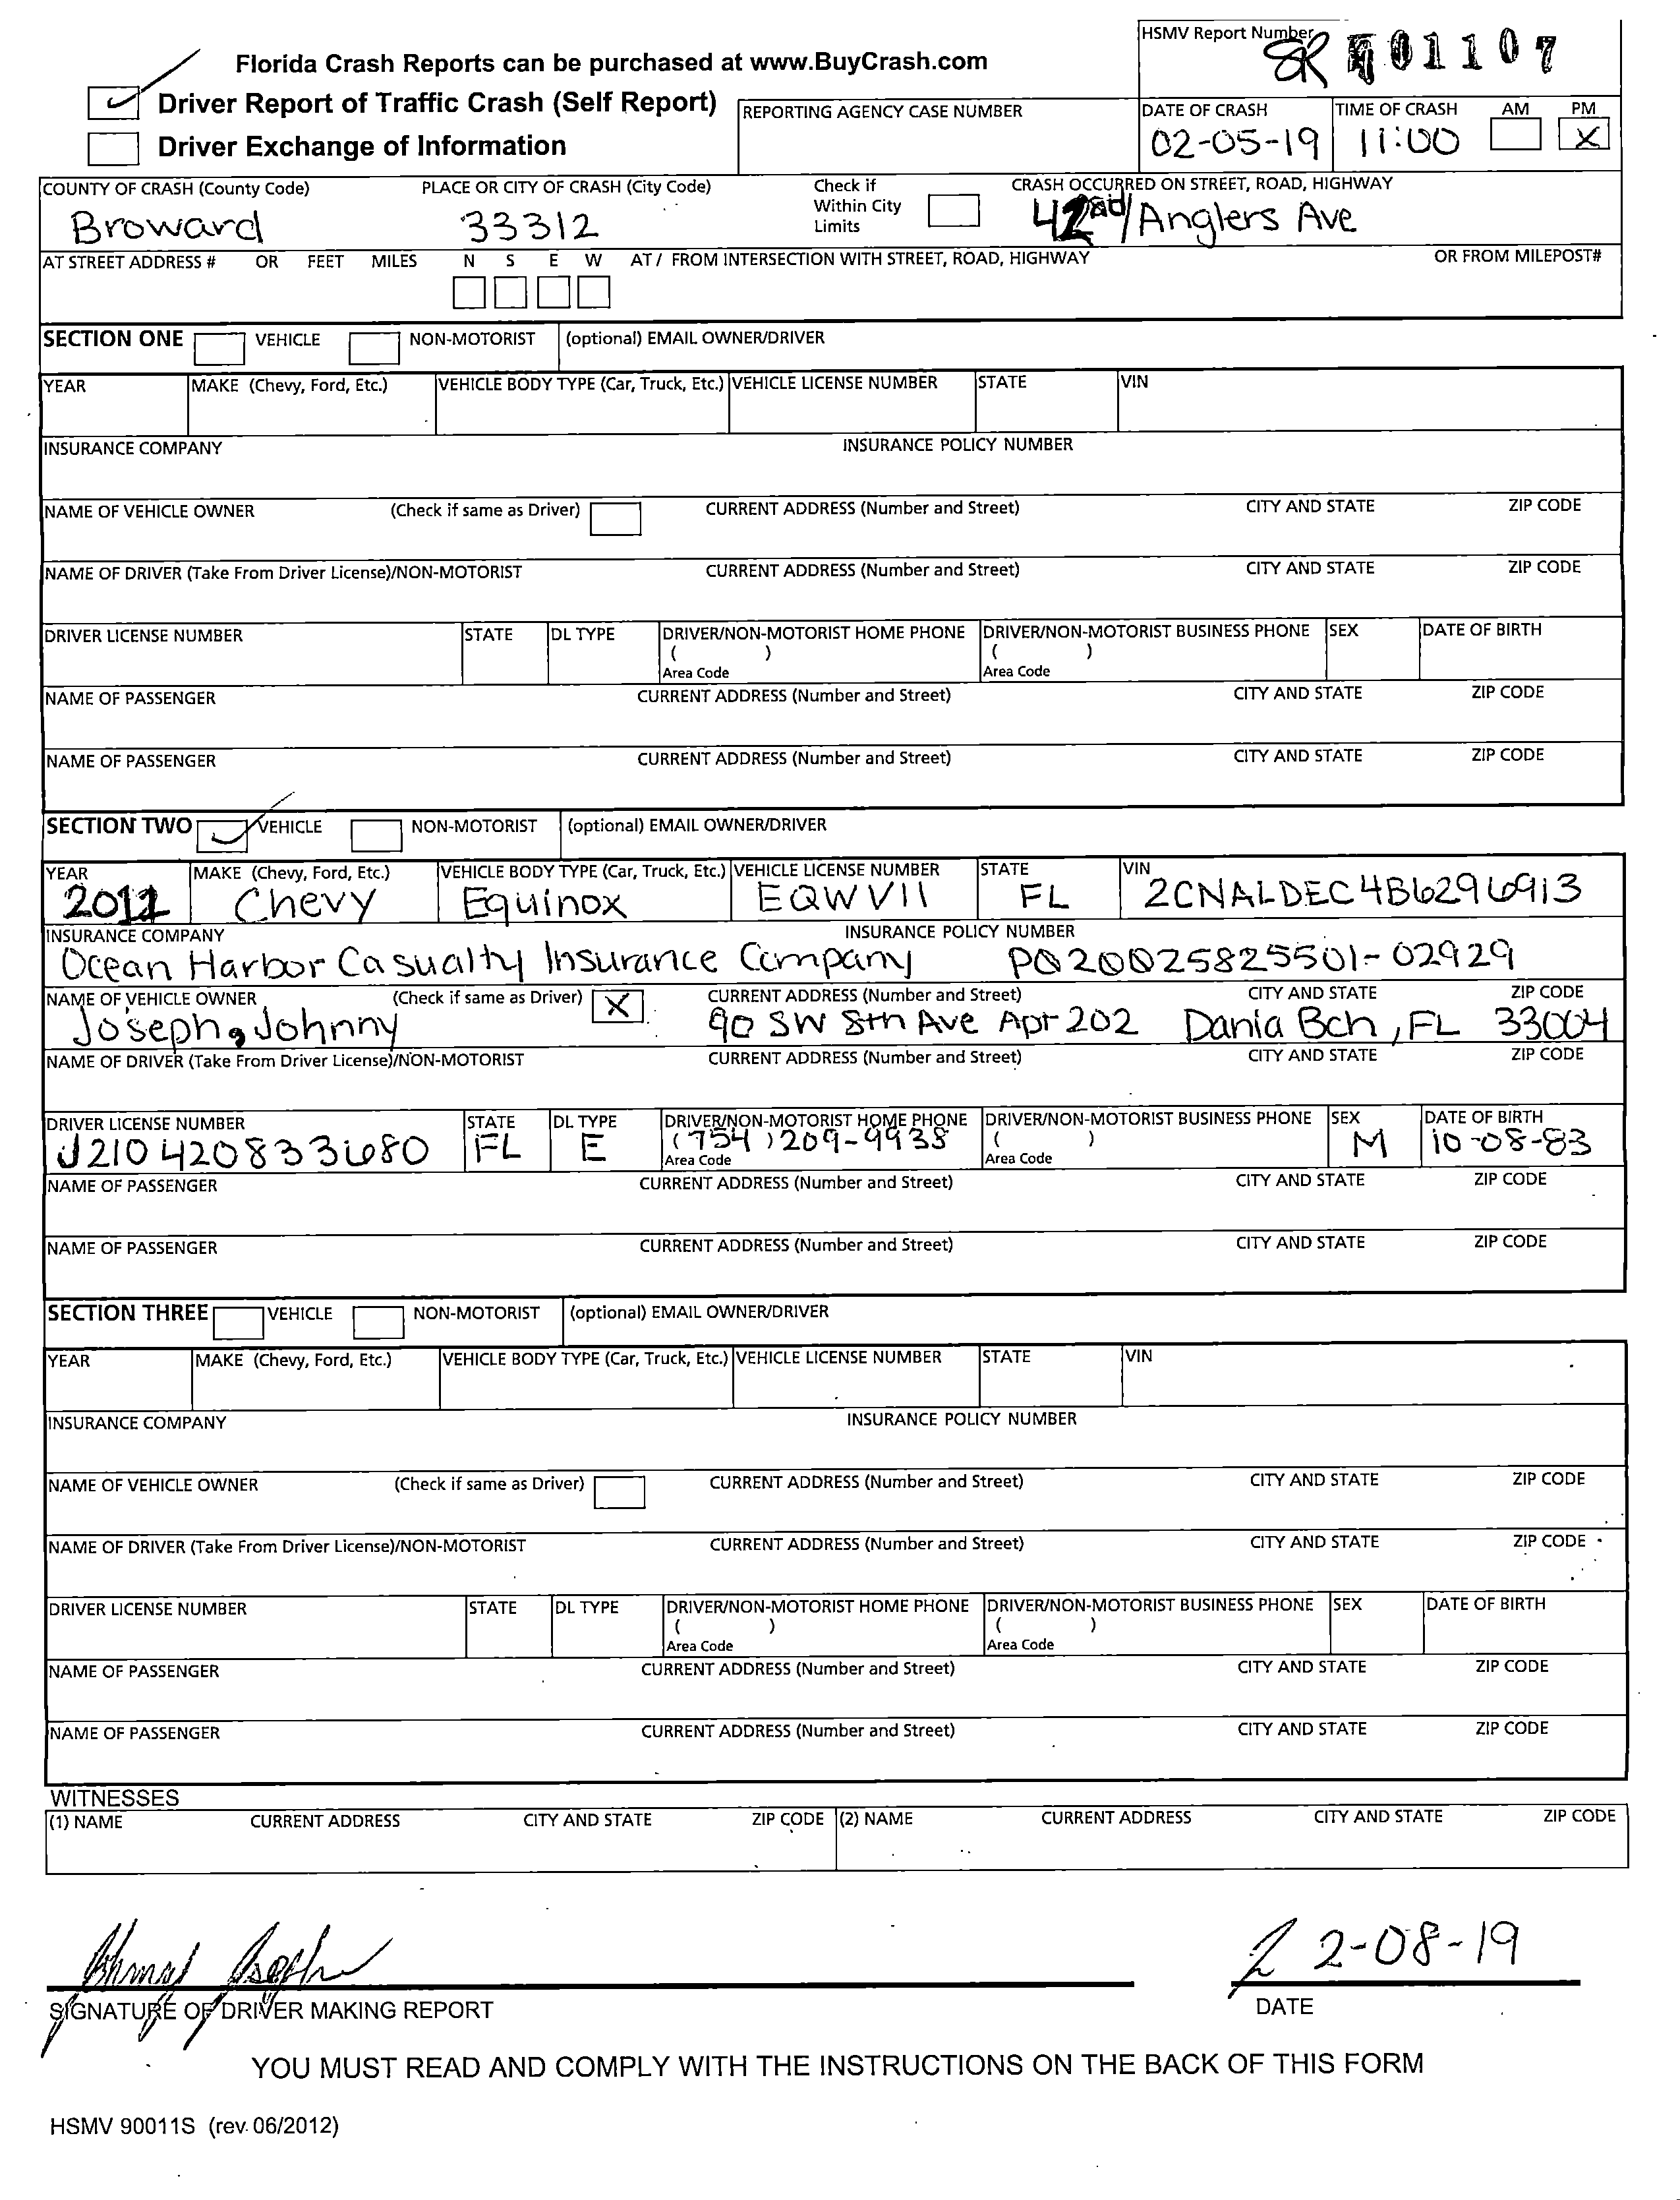 HSMV Report Number
SR 01107
Florida Crash Reports can be purchased at www.BuyCrash.com
Driver Report of Traffic Crash (Self Report)
Driver Exchange of Information
REPORTING AGENCY CASE NUMBER
DATE OF CRASH TIME OF CRASH AM PM
02-05-19 11:00 X
COUNTY OF CRASH (County Code) PLACE OR CITY OF CRASH (City Code) Check if Within City Limits CRASH OCCURRED ON STREET, ROAD, HIGHWAY
Broward 33312 42nd/Anglers Ave
AT STREET ADDRESS # OR FEET MILES N S E W AT / FROM INTERSECTION WITH STREET, ROAD, HIGHWAY OR FROM MILEPOST#
SECTION ONE VEHICLE NON-MOTORIST (optional) EMAIL OWNER/DRIVER
YEAR MAKE (Chevy, Ford, Etc.) VEHICLE BODY TYPE (Car, Truck, Etc.) VEHICLE LICENSE NUMBER STATE VIN
INSURANCE COMPANY INSURANCE POLICY NUMBER
NAME OF VEHICLE OWNER (Check if same as Driver) CURRENT ADDRESS (Number and Street) CITY AND STATE ZIP CODE
NAME OF DRIVER (Take From Driver License)/NON-MOTORIST CURRENT ADDRESS (Number and Street) CITY AND STATE ZIP CODE
DRIVER LICENSE NUMBER STATE DL TYPE DRIVER/NON-MOTORIST HOME PHONE DRIVER/NON-MOTORIST BUSINESS PHONE SEX DATE OF BIRTH
( ) ( )
Area Code Area Code
NAME OF PASSENGER CURRENT ADDRESS (Number and Street) CITY AND STATE ZIP CODE
NAME OF PASSENGER CURRENT ADDRESS (Number and Street) CITY AND STATE ZIP CODE
SECTION TWO VEHICLE NON-MOTORIST (optional) EMAIL OWNER/DRIVER
YEAR MAKE (Chevy, Ford, Etc.) VEHICLE BODY TYPE (Car, Truck, Etc.) VEHICLE LICENSE NUMBER STATE VIN
2011 Chevy Equinox EQWV11 FL 2CNALDEC4B6296913
INSURANCE COMPANY INSURANCE POLICY NUMBER
Ocean Harbor Casualty Insurance Company PO20025825501-02929
NAME OF VEHICLE OWNER (Check if same as Driver) X CURRENT ADDRESS (Number and Street) CITY AND STATE ZIP CODE
Joseph, Johnny 90 SW 8th Ave Apt 202 Dania Bch, FL 33004
NAME OF DRIVER (Take From Driver License)/NON-MOTORIST CURRENT ADDRESS (Number and Street) CITY AND STATE ZIP CODE
DRIVER LICENSE NUMBER STATE DL TYPE DRIVER/NON-MOTORIST HOME PHONE DRIVER/NON-MOTORIST BUSINESS PHONE SEX DATE OF BIRTH
J210420833680 FL E (754) 209-9938 ( ) M 10-08-83
Area Code Area Code
NAME OF PASSENGER CURRENT ADDRESS (Number and Street) CITY AND STATE ZIP CODE
NAME OF PASSENGER CURRENT ADDRESS (Number and Street) CITY AND STATE ZIP CODE
SECTION THREE VEHICLE NON-MOTORIST (optional) EMAIL OWNER/DRIVER
YEAR MAKE (Chevy, Ford, Etc.) VEHICLE BODY TYPE (Car, Truck, Etc.) VEHICLE LICENSE NUMBER STATE VIN
INSURANCE COMPANY INSURANCE POLICY NUMBER
NAME OF VEHICLE OWNER (Check if same as Driver) CURRENT ADDRESS (Number and Street) CITY AND STATE ZIP CODE
NAME OF DRIVER (Take From Driver License)/NON-MOTORIST CURRENT ADDRESS (Number and Street) CITY AND STATE ZIP CODE
DRIVER LICENSE NUMBER STATE DL TYPE DRIVER/NON-MOTORIST HOME PHONE DRIVER/NON-MOTORIST BUSINESS PHONE SEX DATE OF BIRTH
( ) ( )
Area Code Area Code
NAME OF PASSENGER CURRENT ADDRESS (Number and Street) CITY AND STATE ZIP CODE
NAME OF PASSENGER CURRENT ADDRESS (Number and Street) CITY AND STATE ZIP CODE
WITNESSES
(1) NAME CURRENT ADDRESS CITY AND STATE ZIP CODE (2) NAME CURRENT ADDRESS CITY AND STATE ZIP CODE
Johnny Joseph 2-08-19
SIGNATURE OF DRIVER MAKING REPORT DATE
YOU MUST READ AND COMPLY WITH THE INSTRUCTIONS ON THE BACK OF THIS FORM
HSMV 90011S (rev. 06/2012)